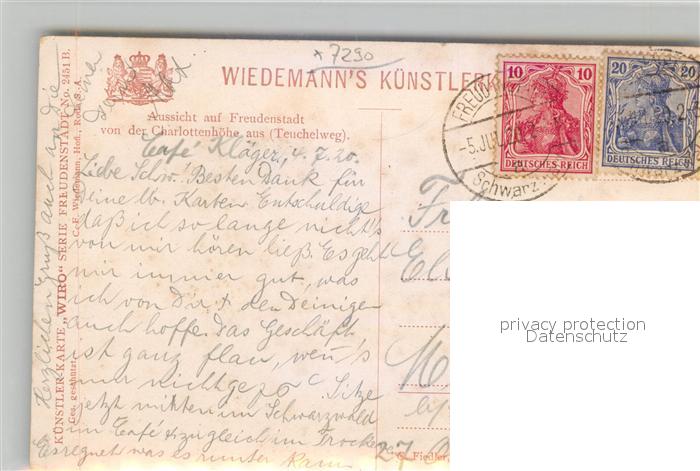 * 7290
WIEDEMANN'S KÜNSTLER
Aussicht auf Freudenstadt
von der Charlottenhöhe aus (Teuchelweg).
10 10
DEUTSCHES REICH
20 20
DEUTSCHES REICH
FREUD
-5.JUL.20
Schwarz
Café Kläger, 4.7.20.
Liebe Schw. Besten Dank für
Deine lb. Karten. Entschuldige
daß ich so lange nicht's
von mir hören ließ. Es geht
mir immer gut, was
ich von Dir & den Deinigen
auch hoffe. Das Geschäft
ist ganz flau, wenn's
nur nicht Sitze
jetzt mitten im Schwarzwald
im Café & zugleich im Trocke
Es regnet was es runter kann.
Herzlichen Gruß auch an die
KÜNSTLER-KARTE „WIRO" SERIE FREUDENSTADT No. 2451 B.
Ges. geschützt. C. F. Wiedemann, Hofl., Roda S.-A.
Fr
El
M
27
C. Fiedler,
privacy protection
Datenschutz